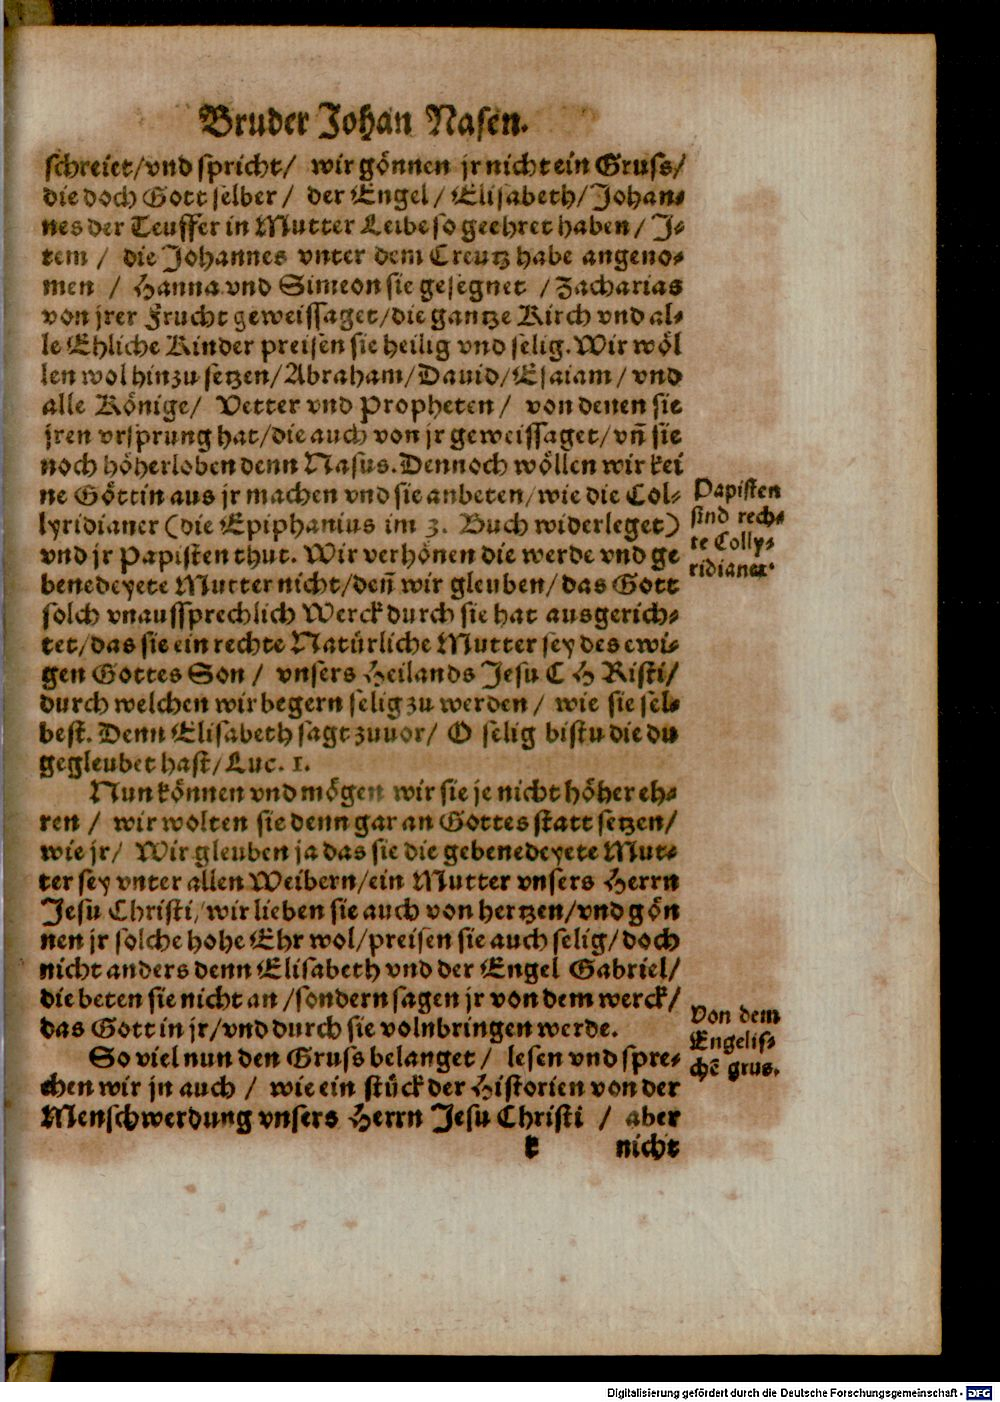 Bruder Johan Nasen.
schreiet/vnd spricht/ wir gönnen jr nicht ein Gruss/
die doch Gott selber/ der Engel/ Elisabeth/Johan-
nes der Teuffer in Mutter Leibe so geehret haben/ J-
tem/ die Johannes vnter dem Creutz habe angeno-
men / Hanna vnd Simeon sie gesegnet /Zacharias
von jrer Frucht geweissaget/die gantze Kirch vnd al-
le Ehliche Kinder preisen sie heilig vnd selig. Wir wöl
len wol hinzu setzen/Abraham/Dauid/Esaiam/vnd
alle Könige/ Vetter vnd Propheten/ von denen sie
jren vrsprung hat/die auch von jr geweissaget/vn̄ sie
noch höher loben denn Nasus. Dennoch wöllen wir kei
ne Göttin aus jr machen vnd sie anbeten/wie die Col-
lyridianer (die Epiphanius im 3. Buch widerleget)
vnd jr Papisten thut. Wir verhönen die werde vnd ge
benedeyete Mutter nicht/den̄ wir gleuben/das Gott
solch vnaussprechlich Werck durch sie hat ausgerich-
tet/das sie ein rechte Natürliche Mutter sey des ewi-
gen Gottes Son/ vnsers Heilands Jesu C H Risti/
durch welchen wir begern selig zu werden/ wie sie sel-
best. Denn Elisabeth sagt zuuor/ O selig bistu die du
gegleubet hast/Luc. 1.
Papisten
sind rech-
te Colly-
ridianer.
Nun können vnd mögen wir sie je nicht höher eh-
ren/ wir wolten sie denn gar an Gottes statt setzen/
wie jr/ Wir gleuben ja das sie die gebenedeyete Mut-
ter sey vnter allen Weibern/ein Mutter vnsers Herrn
Jesu Christi/wir lieben sie auch von hertzen/vnd gön
nen jr solche hohe Ehr wol/preisen sie auch selig/doch
nicht anders denn Elisabeth vnd der Engel Gabriel/
die beten sie nicht an/sondern sagen jr von dem werck/
das Gott in jr/vnd durch sie volnbringen werde.
So viel nun den Gruss belanget/ lesen vnd spre-
chen wir jn auch/ wie ein stück der Historien von der
Menschwerdung vnsers Herrn Jesu Christi / aber
Von dem
Engelis-
chē grus.
k nicht
Digitalisierung gefördert durch die Deutsche Forschungsgemeinschaft - DFG